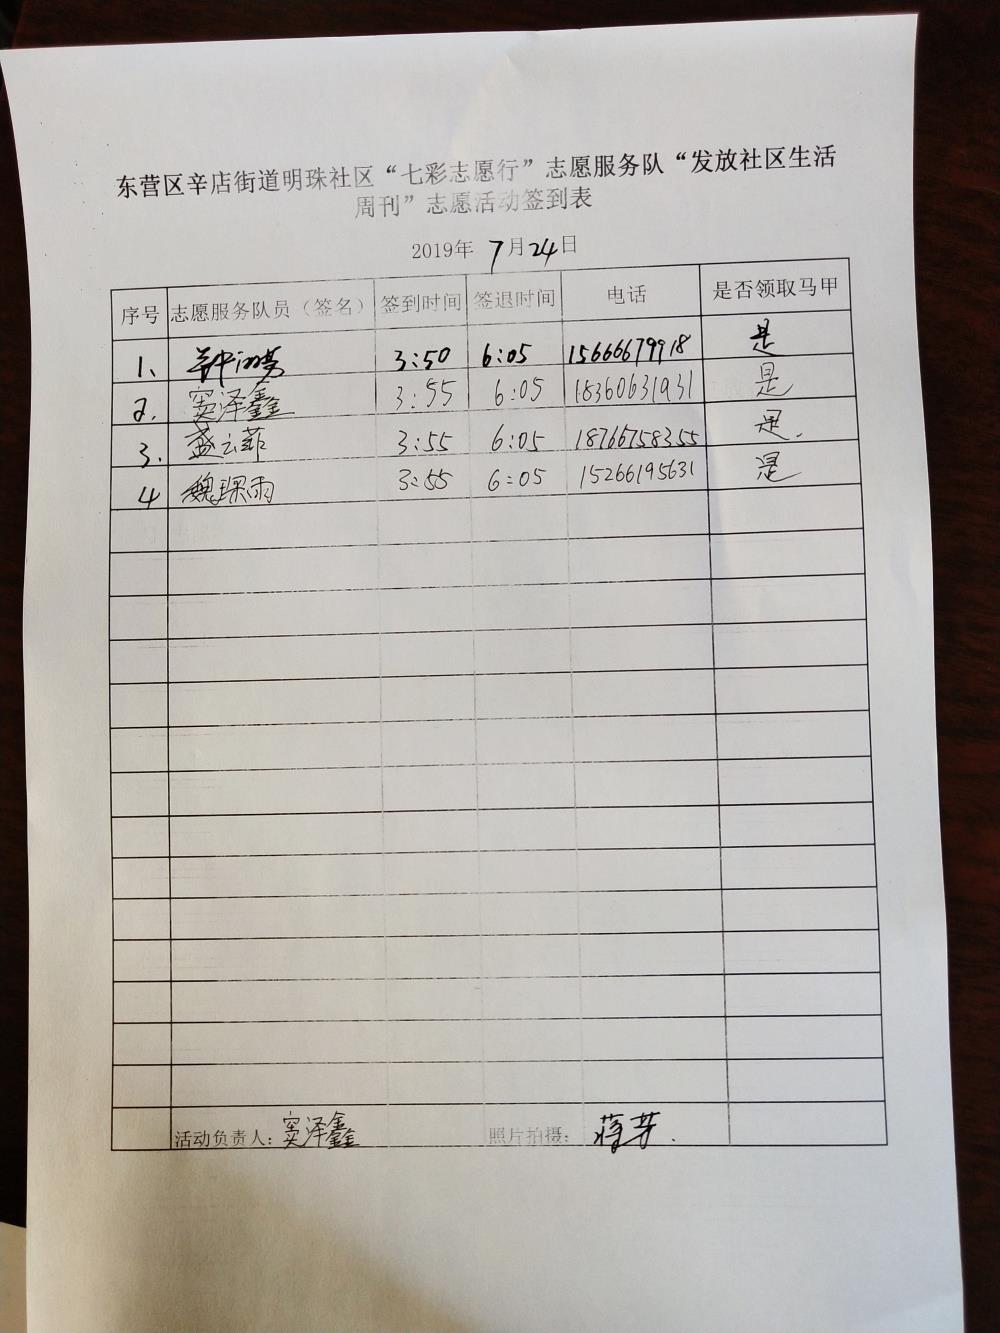 东营区辛店街道明珠社区“七彩志愿行”志愿服务队“发放社区生活
周刊”志愿活动签到表
2019年 7月24日
序号 志愿服务队员（签名） 签到时间 签退时间 电话 是否领取马甲
1、 3:50 6:05 15666679918 是
2. 窦泽鑫 3:55 6:05 18360631931 是
3. 盛云菲 3:55 6:05 18766758355 是.
4 魏琛雨 3:55 6:05 15266195631 是
活动负责人：窦泽鑫 照片拍摄：蒋芳.